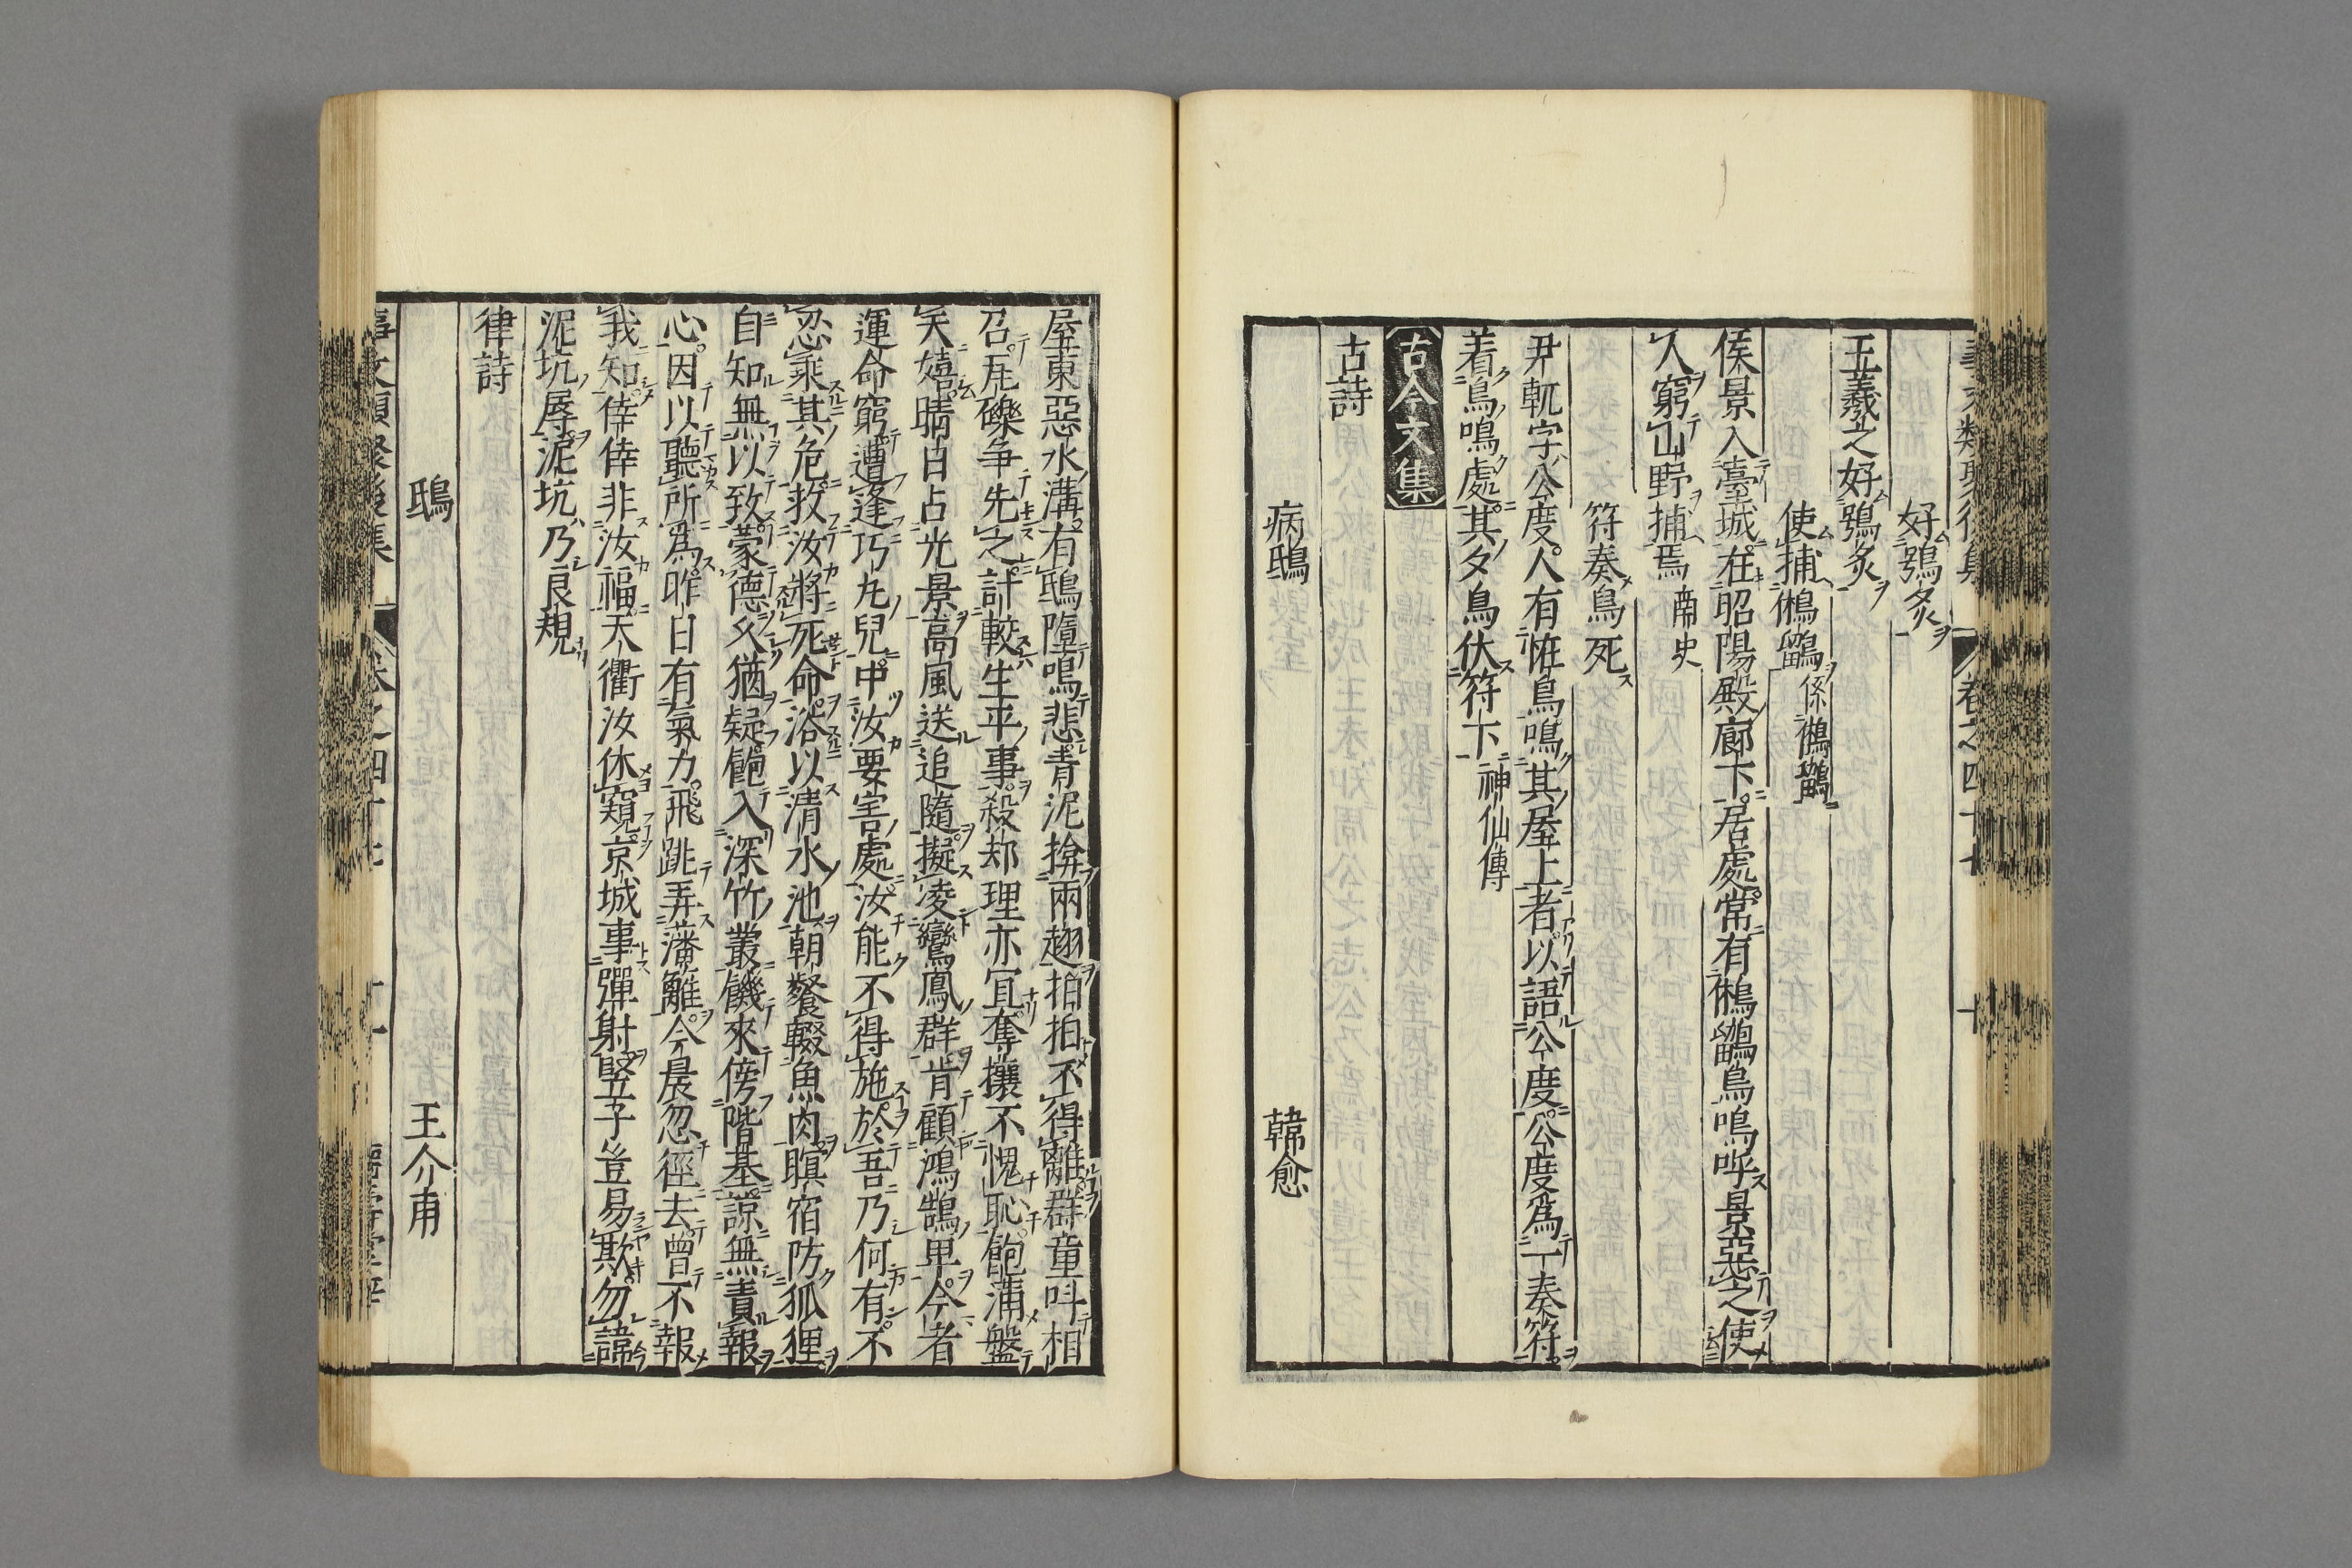 事文類聚後集 卷之四十七 十
好鴞炙
王羲之好鴞炙
使捕鵂鶹係鵂鶹
侯景入臺城在昭陽殿廊下居處常有鵂鶹鳥鳴呼景惡之使
人窮山野捕焉南史
符奏鳥死
尹軌字公度人有恠鳥鳴其屋上者以語公度公度爲一奏符
着鳥鳴處其夕鳥伏符下神仙傳
古今文集
古詩
病鴟 韓愈
屋東惡水溝有鴟墮鳴悲青泥揜兩翅拍拍不得離群童呌相
召瓦礫争先之計較生平事殺却理亦宜奪攘不愧恥飽滿盤
天嬉晴日占光景高風送追隨擬凌鸞鳳群肯顧鴻鵠卑今者
運命窮遭逢巧丸兒中汝要害處汝能不得施於吾乃何有不
忍乘其危救汝將死命浴以清水池朝餐輟魚肉瞑宿防狐狸
自知無以致蒙德久猶疑飽入深竹叢饑來傍階基諒無責報
心因以聽所爲昨日有氣力飛跳弄藩離今晨忽徑去曾不報
我知倖倖非汝福天衢汝休窺京城事彈射竪子豈易欺勿諱
泥坑辱泥坑乃良規
律詩
鴟 王介甫
事文類聚後集 卷之四十七 十一